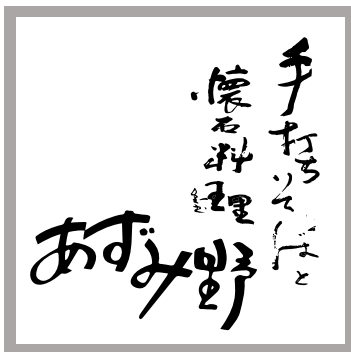 手打ちそばと
懐石料理
あずみ野